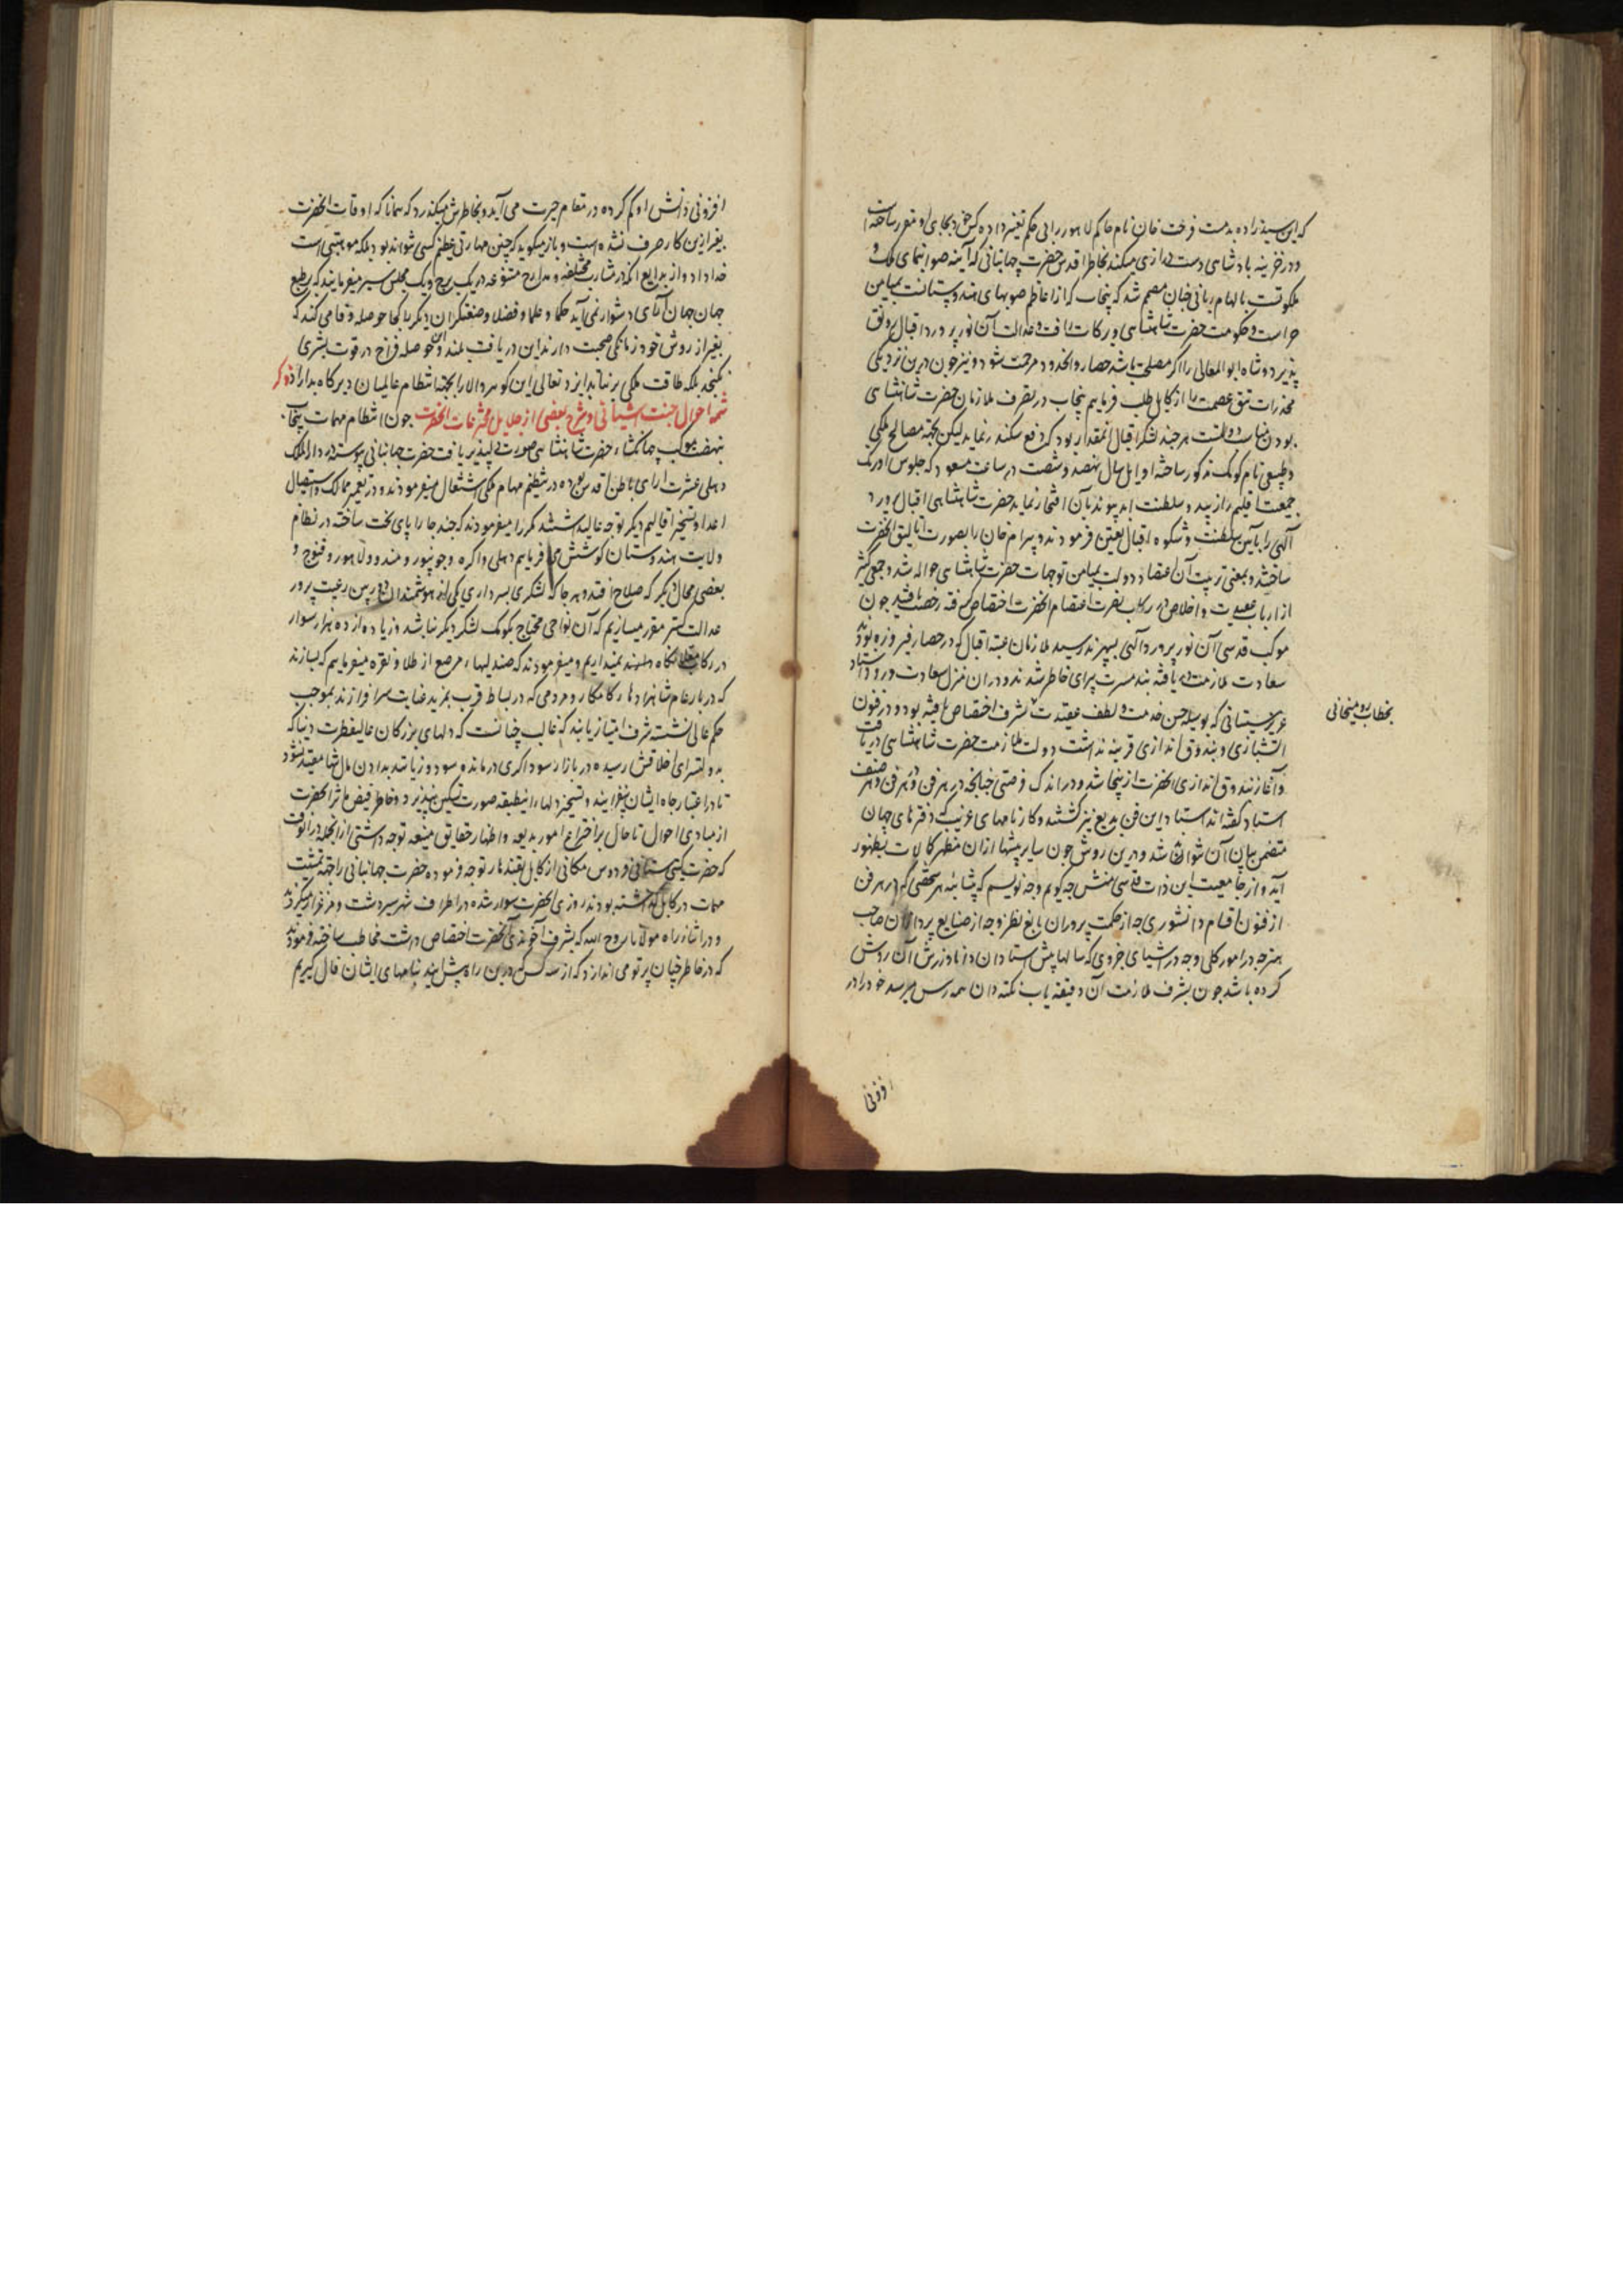 که این سید زاده بدمست فرحت خان نام حاکم لاهور را بی حکم تغیر داده کس خود بجای او مقرر ساخته است
و در خزینه پادشاهی دست درازی میکند بخاطر اقدس حضرت جهانبانی که آینه صوابنمای ملک و
ملکوتست بالهام ربانی چنان مصمم شد که پنجاب که از اعاظم صوبهای هندوستانست بمیامن
حراست و حکومت حضرت شاهنشاهی و برکات رافت و عدالت آن نورپرورد اقبال رونق
پذیرد و شاه ابوالمعالی را اگر مصلحت باشد حصار و آنحدود مرحمت شود و نیز چون درین نزدیکی
مخدرات تتق عصمت را از کابل طلب فرماییم پنجاب در تصرف ملازمان حضرت شاهنشاهی
بودن مناسب دولتست هر چند لشکر اقبال آنمقدار بود که دفع سکندر نماید لیکن بجهة مصالح ملکی
و طبیعی نام کومک مذکور ساخته اوایل سال نهصد و شصت در ساعت مسعود که جلوس اورنگ
جمعیت اقلیم را زیبد و سلطنت ابد پیوند بآن افتخار نماید حضرت شاهنشاهی اقبال پرورد
آلهی را بآیین سلطنت و شکوه اقبال تعین فرمودند و بیرام خان را بصورت اتالیق آنحضرت
ساختند و بمعنی تربیت آن اعتضاد دولت بمیامن توجهات حضرت شاهنشاهی حواله شد و جمعی کثیر
از ارباب عقیدت و اخلاص در رکاب نصرت اعتصام آنحضرت اختصاص گرفته رخصت یافتند چون
موکب قدسی آن نورپرورد آلهی بسهرند رسید ملازمان عتبه اقبال که در حصار فیروزه بودند
سعادت ملازمت دریافته مسرت پیرای خاطر شدند و دران منزل سعادت ورود استاد
عزیز سیستانی که بوسیله حسن خدمت و لطف عقیدت بشرف اختصاص یافته بود و در فنون
بخطاب رومیخانی
آتشبازی و بندوق اندازی قرینه نداشت دولت ملازمت حضرت شاهنشاهی دریافت
و آغاز بندوق اندازی آنحضرت ازینجا شد و در اندک فرصتی چنانچه در هر فن و هر صنف
استاد گفته اند استاد این فن بدیع نیز گشتند و کارنامهای غریب که دفترهای جهان
متضمن بیان آن نتواند شد و درین روش چون سایر پیشها ازان مظهر کمالات بظهور
آید و از جامعیت این ذات قدسی منش چه گویم و چه نویسم که بمثابه هر شخصی که در هر فن
از فنون اقسام دانشوری چه از حکمت پروران بالغ نظر و چه از صنایع پردازان صاحب
هنر چه در امور کلی و چه در اشیای جزوی که سالها پیش استادان دانا ورزش آن روش
کرده باشد چون بشرف ملازمت آن دقیقه یاب نکته دان همه رس میرسد خود را در
افزونی
افزونی دانش او گم کرده در مقام حیرت می آید و بخاطرش میگذرد که همانا که اوقات آنحضرت
بغیر ازین کار صرف نشده است و باز میگوید که چنین مهارتی عظیم کسبی نتواند بود بلکه موهبتی است
خداداد و از بدایع آنکه در مشارب مختلفه و مدارج متنوعه در یک برج و یک مجلس سیر میفرمایند که بر طبع
جهان جهان آرای دشوار نمی آید حکما و علما و فضلا و صنعتگران دیگر را کجا حوصله وفا می کند که
بغیر از روش خود زمانکی صحبت دارند این دریافت بلند و این حوصله فراخ در قوت بشری
نگنجد بلکه طاقت ملکی برنتابد ایزد تعالی این گوهر والا را بجهة انتظام عالمیان دیرگاه بداراد ذکر
شمه احوال جنت آشیانی و شرح بعضی از جلایل مخترعات آنحضرت چون انتظام مهمات پنجاب
بنهضت موکب جهانگشاء حضرت شاهنشاهی صورت دلپذیر یافت حضرت جهانبانی پیوسته در دارالملک
دهلی عشرت آرای باطن اقدس بوده در تنظیم مهام ملکی اشتغال میفرمودند و در تعمیر ممالک و استیصال
اعدا و تسخیر اقالیم دیگر توجه عالی داشتند مکرر میفرمودند که چند جا را پای تخت ساخته در نظام
ولایت هندوستان کوشش فرماییم دهلی و آگره و جونپور و مندو و لاهور و قنوج و
بعضی محال دیگر که صلاح افتد و هر جا که لشکری بسرداری یکی از هوشمندان دوربین رعیت پرور
عدالت گستر مقرر میسازیم که آن نواحی محتاج بکومک لشکر دیگر نباشد و زیاده از ده هزار سوار
در رکاب نگاه نمیداریم و میفرمودند که صندلیها مرصع از طلا و نقره میفرماییم که بسازند
که در بار عام شاهزادهای کامکار و مردمی که در بساط قرب بمزید عنایت سرافرازند بموجب
حکم عالی نشسته شرف امتیاز یابند که غالب چنانست که دلهای بزرگان عالیفطرت دنیا که
بدولتسرای اخلاقش رسیده در بازار سوداگری درمانده سود و زیان اند بدادن مال تنها مقید نشود
تا در اعتبار جاه ایشان نیفزایند و تسخیر دلها ازینطبقه صورت تسکین نپذیرد و خاطر فیض مآثر آنحضرت
از مبادی احوال تا حال بر اختراع امور بدیعه و اظهار حقایق منیعه توجه داشتی از انجمله در آنوقت
که حضرت گیتی ستانی فردوس مکانی از کابل بقندهار توجه فرموده حضرت جهانبانی را بجهة تمشیت
مهمات در کابل گذاشته بودند روزی آنحضرت سوار شده در اطراف شهر سیر دشت و مرغزار میکردند
و در اثناء راه مولانا روح الله که بشرف آخوندی آنحضرت اختصاص داشت مخاطب ساخته فرمودند
که در خاطر چنان پرتو می اندازد که از سه کس که درین راه پیش آیند بنامهای ایشان فال گیریم